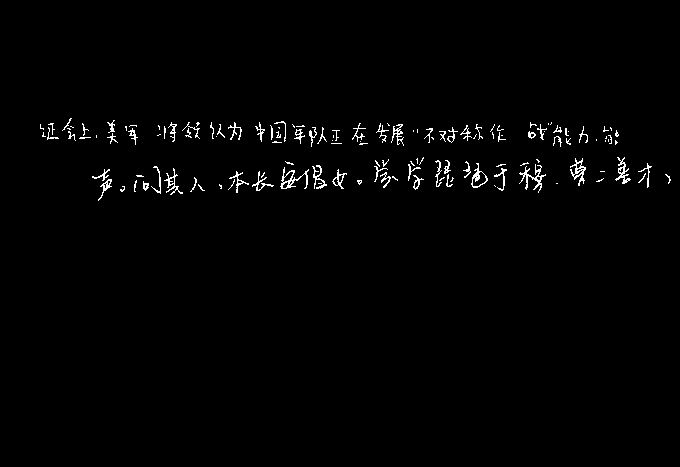 证会上,美军将领认为中国军队正在发展“不对称作战”能力,能
声。问其人,本长安倡女。尝学琵琶于穆、曹二善才、